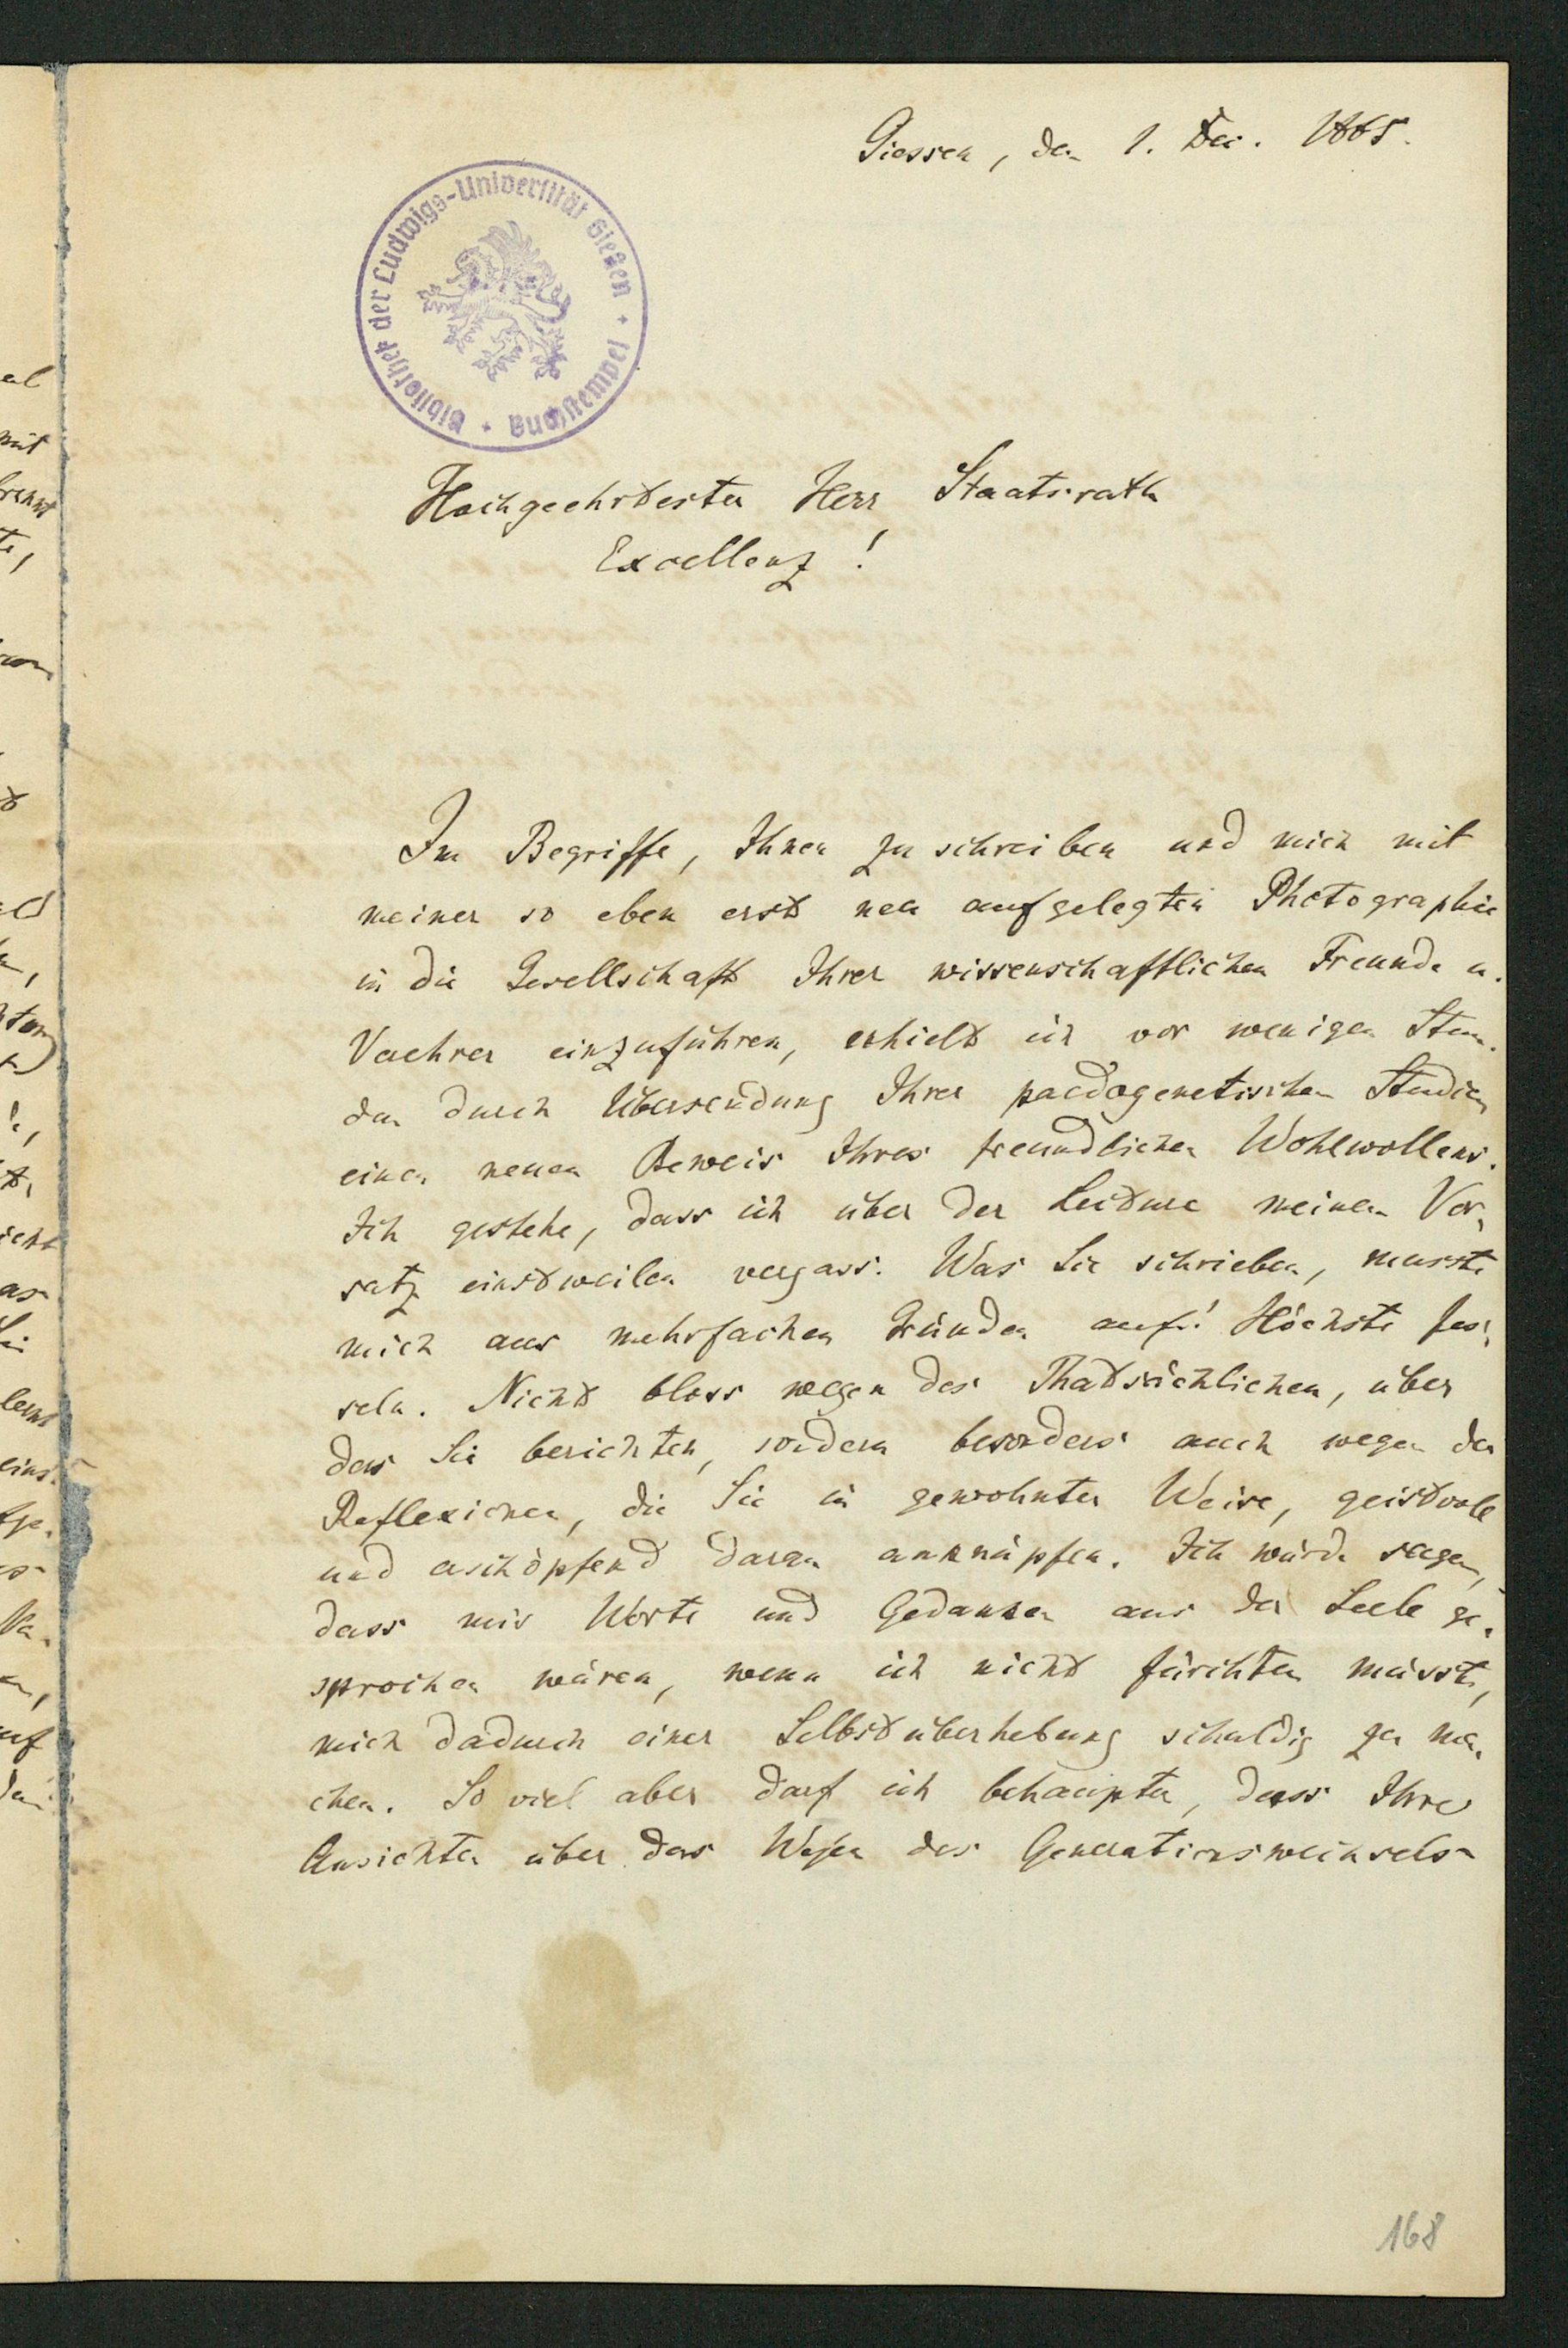 Giessen, den 1. Dec. 1865.
Bibliothek der Ludwigs-Universität Gießen
Buchstempel
Hochgeehrtester Herr Staatsrath
Excellenz!
Im Begriffe, Ihnen zu schreiben und mich mit
meiner so eben erst neu aufgelegten Photographie
in die Gesellschaft Ihrer wissenschaftlichen Freunde u.
Verehrer einzuführen, erhielt ich vor wenigen Stun-
den durch Übersendung Ihrer paedogenetischen Studien
einen neuen Beweis Ihres freundlichen Wohlwollens.
Ich gestehe, dass ich über der Lecture meinen Vor-
satz einstweilen vergass. Was Sie schrieben, musste
mich aus mehrfachen Gründen auf's Höchste fes-
seln. Nicht bloss wegen des Thatsächlichen, über
das Sie berichten, sondern besonders auch wegen der
Reflexionen, die Sie in gewohnter Weise, geistvoll
und erschöpfend daran anknüpfen. Ich würde sagen,
dass mir Worte und Gedanken aus der Seele ge-
sprochen wären, wenn ich nicht fürchten müsste,
mich dadurch einer Selbstüberhebung schuldig zu ma-
chen. So viel aber darf ich behaupten, dass Ihre
Ansichten über das Wesen des Generationswechsels
168